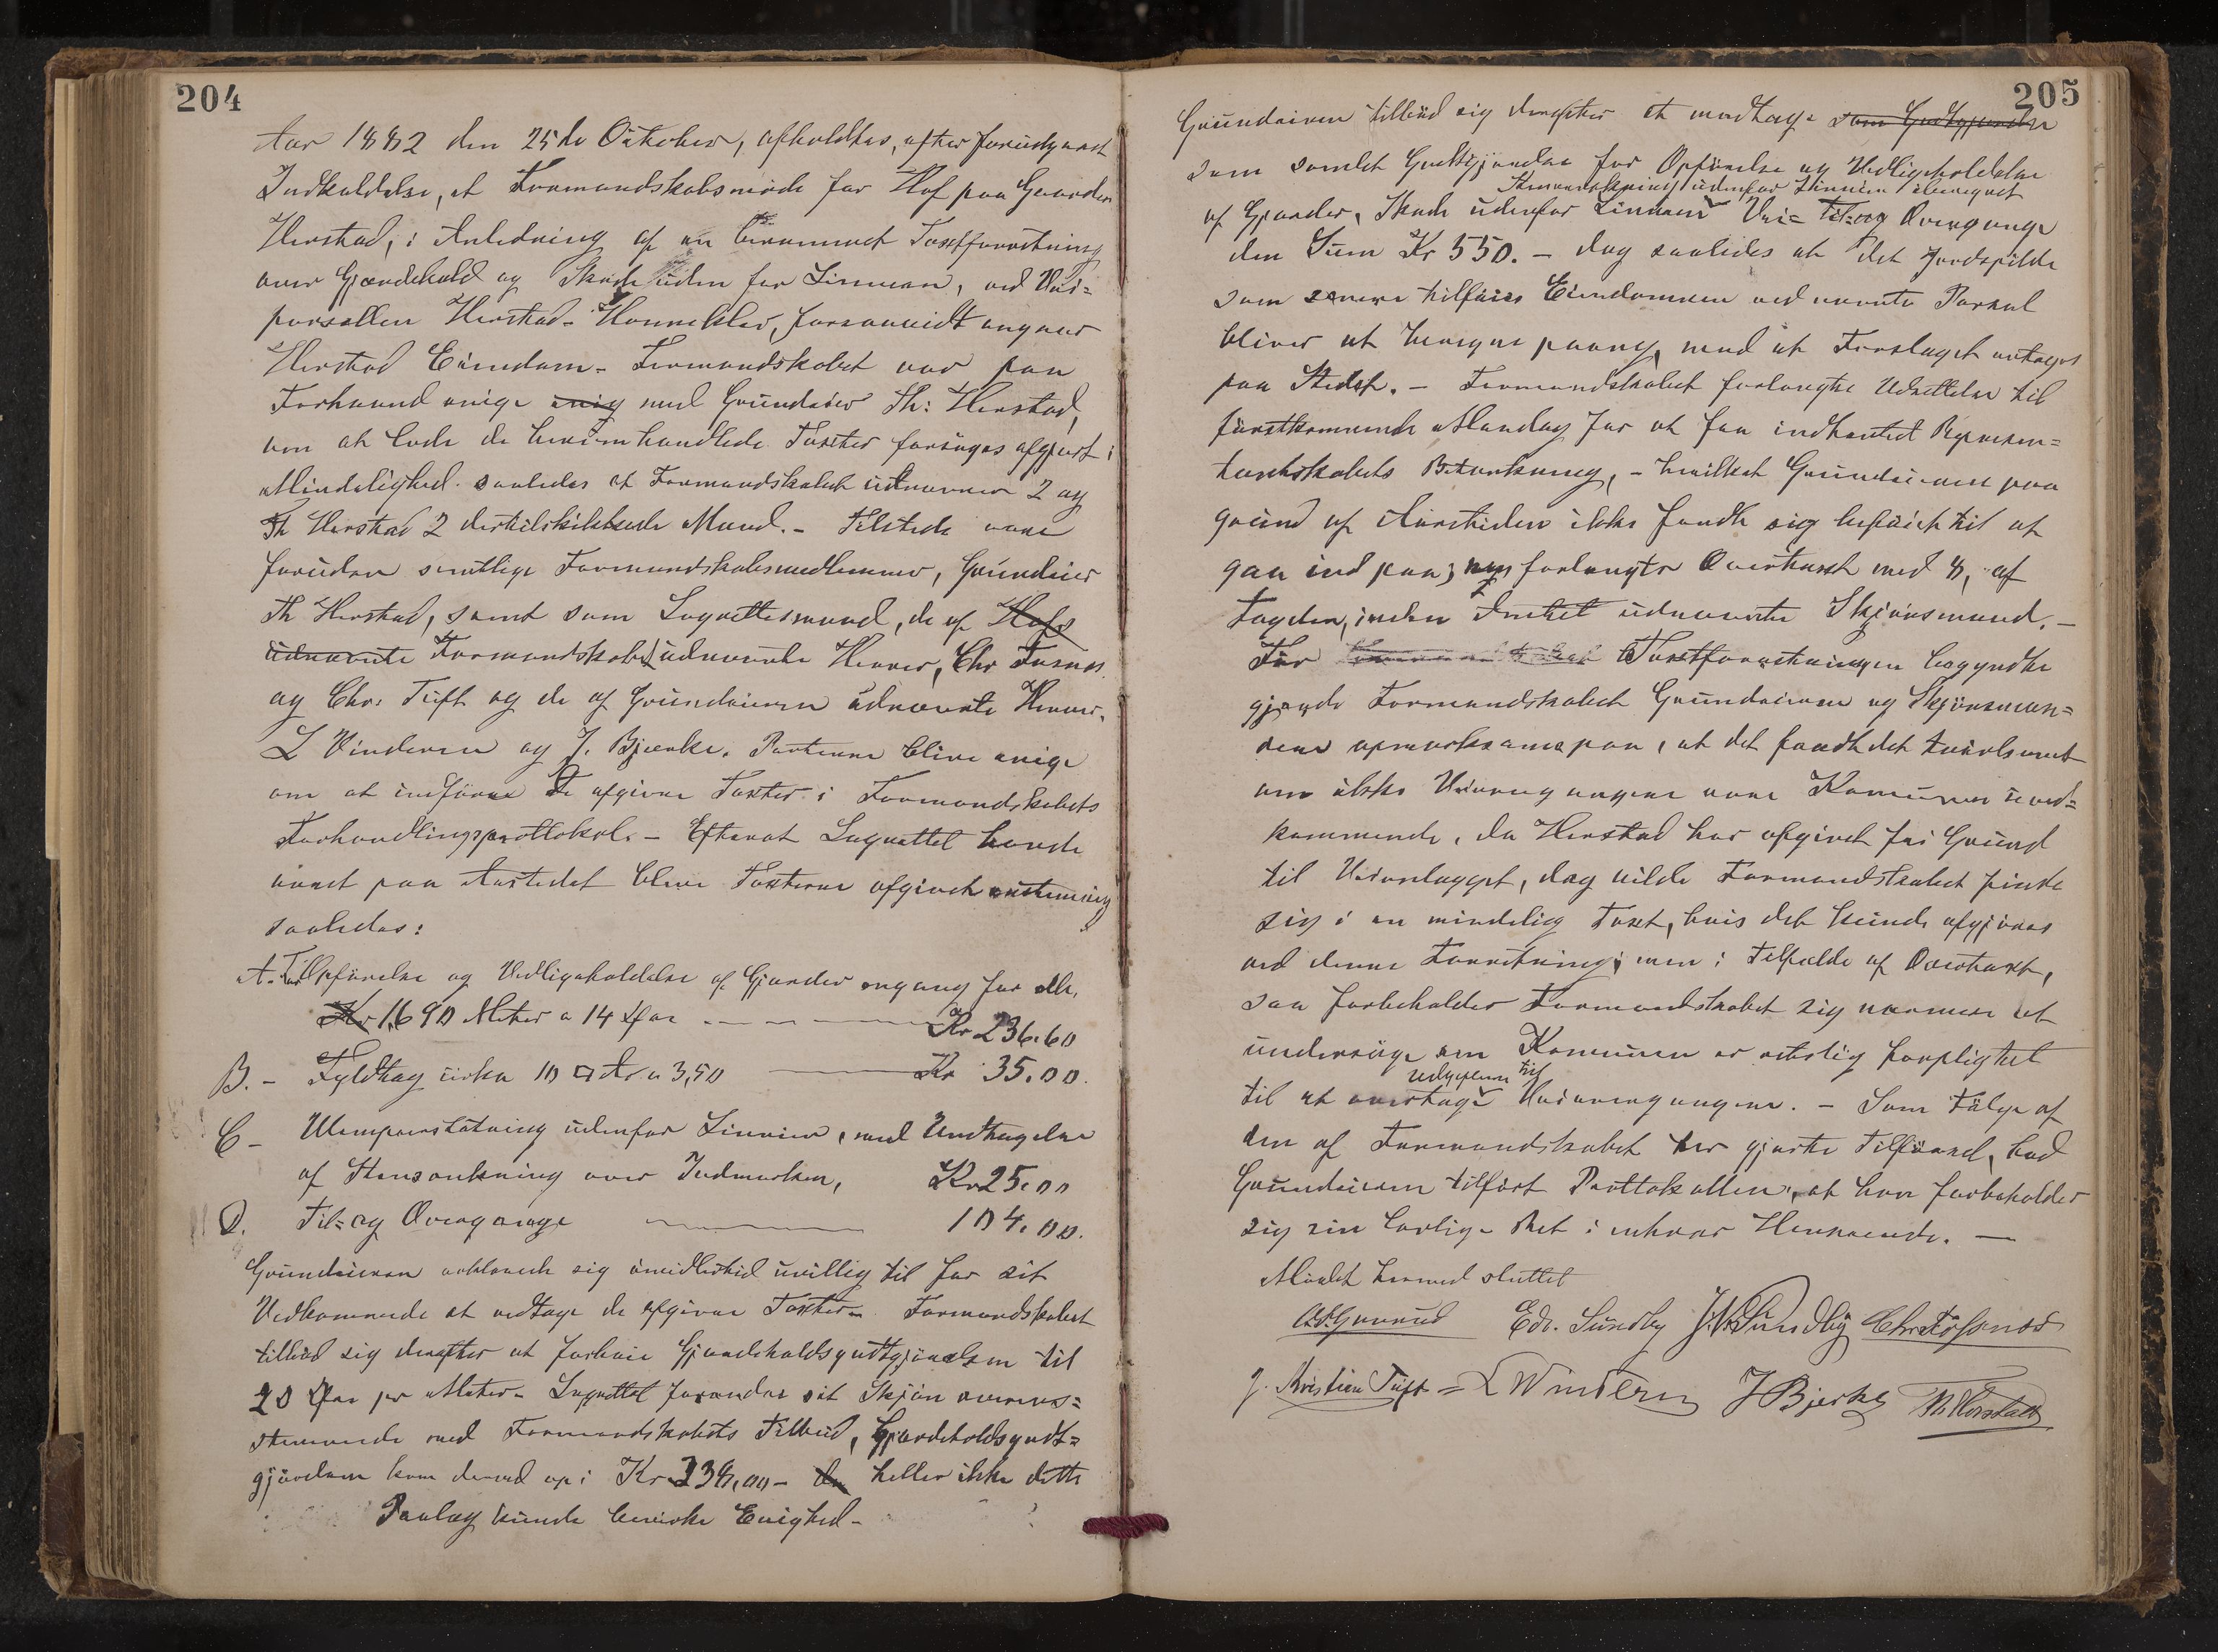 204
Aar 1882 den 25de Oktober, afholdtes, efter forudgaaet
Indkaldelse, et Formandskabsmöde for Hof paa Gaarden
Herstad, i Anledning af en berammet Taxtforretning
over Gjærdehold og Skade uden for Linnien, ved Vei=
parsellen Herstad - Honneklev, forsaavidt angaar
Herstad Eiendom - Formandskabet var paa
Forhaand enige enig med Grundeier Th: Herstad,
om at lade de heromhandlede Taxter forsöges afgjort i
Mindelighed. saaledes at Formandskabet udnævner 2 og
Th Herstad 2 dertilskikkede Mænd. - Tilstede vare
foruden samtlige Formandskabsmedlemmer, Grundeier
Th Herstad, samt som Lagrettesmænd, de af Hofs
udnævnte Formandskabet udnævnte Herrer, Chr Fosnes
og Chr: Tuft og de af Grundeieren udnævnte Herrer.
L Vinderen og J. Bjerke. Parterne bleve enige
om at indföre de afgivne Taxter i Formandskabets
Forhandlingsprottokol. - Efterat Lagrettet havde
været paa Aastedet bleve Taxterne afgivet enstemmig
saaledes:
A. For Opförelse og Vedligeholdelse af Gjærder engang for alle,
Kr 1,690 Meter a 14 Öre - - - Kr 236.60
B. - Fyldtag cirka 10 □ Ar a 3,50 Kr 35.00.
C - Ulempeerstatning udenfor Linnien, med Undtagelse
af Stensænkning over Indmarken, Kr 25.00
D. Til- og Overgange 104.00.
Grundeieren erklærede sig imidlertid uvillig til for sit
Vedkommende at vedtage de afgivne Taxter - Formandskabet
tilböd sig derefter at forhöie Gjærdeholdsgodtgjörelsen til
20 Öre pr Meter - Lagrettet forandret sit Skjön overens=
stemmende med Formandskabets Tilbud, Gjærdeholdsgodt=
gjörelsen kom derved op i Kr 338,00 - da heller ikke dette
Paalæg kunde bevirke Enighed -
205
Grundeieren tilböd sig derefter at modtage som Godtgjörelse
som samlet Godtgjörelse for Opförelse og Vedligeholdelse
Stensænkning udenfor Linnien iberegnet
af Gjærder, Skade udenfor Linnien Vei= Til- og Overgange
den Sum Kr 550. - dog saaledes at det Jordspilde
som senere tilföies Eiendommen ved nævnte Parsel
bliver at beregne paany, med at Forslaget vedtages
paa Stedet. - Formandskabet forlangte Udsættelse til
förstkommende Mandag for at faa indhentet Represen=
tantskabets Betænkning, - hvilket Grundeieren paa
grund af Aarstiden ikke fandt sig beföiet til at
gaa ind paa; men forlangte Overtaxt med 8, af
Fogden, inden Amtet udnævnte Skjönsmænd. -
För Taxtforretningen begyndte
gjorde Formandskabet Grundeieren og Skjönsmæn=
dene opmærksomme paa, at det fandt det tvivlsomt
om ikke Veiovergangene vare Kommunen uved=
kommende, da Herstad har afgivet fri Grund
til Veianlægget, dog vilde Formandskabet finde
sig i en mindelig Taxt, hvis det kunde afgjöres
ved denne Forretning; men i Tilfælde af Overtaxt,
saa forbeholder Formandskabet sig nærmere at
undersöge om Kommunen er retslig forpligtet
Udgifterne til
til at overtage Veiovergangene. - Som Fölge af
den af Formandskabet her gjorte Tilförsel, bad
Grundeieren tilfört Prottokollen, at han forbeholder
sig sin lovlige Ret i enhver Henseende. -
Mödet hermed sluttet
Edv. Sundby J.N. Sundby Chr Fossnes
J. Kristian Tuft = L Windern J Bjerke Th Herstad